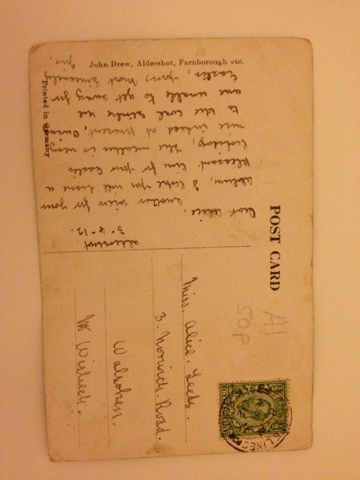 John Drew, Aldershot, Farnborough etc.
Printed in Germany
POST CARD
Aldershot.
3-4-12.
Dear Alice,
Another view for your
Album, I hope you will have a
pleasant time for your Easter
holiday, the weather is very
nice indeed at present. Owing
to the coal strike we
are unable to get away for
Easter, yours most sincerely
Miss. Alice. Leeds.
3. Norwich. Road.
Walsoken.
Nr Wisbech.
A1
50p
LINES